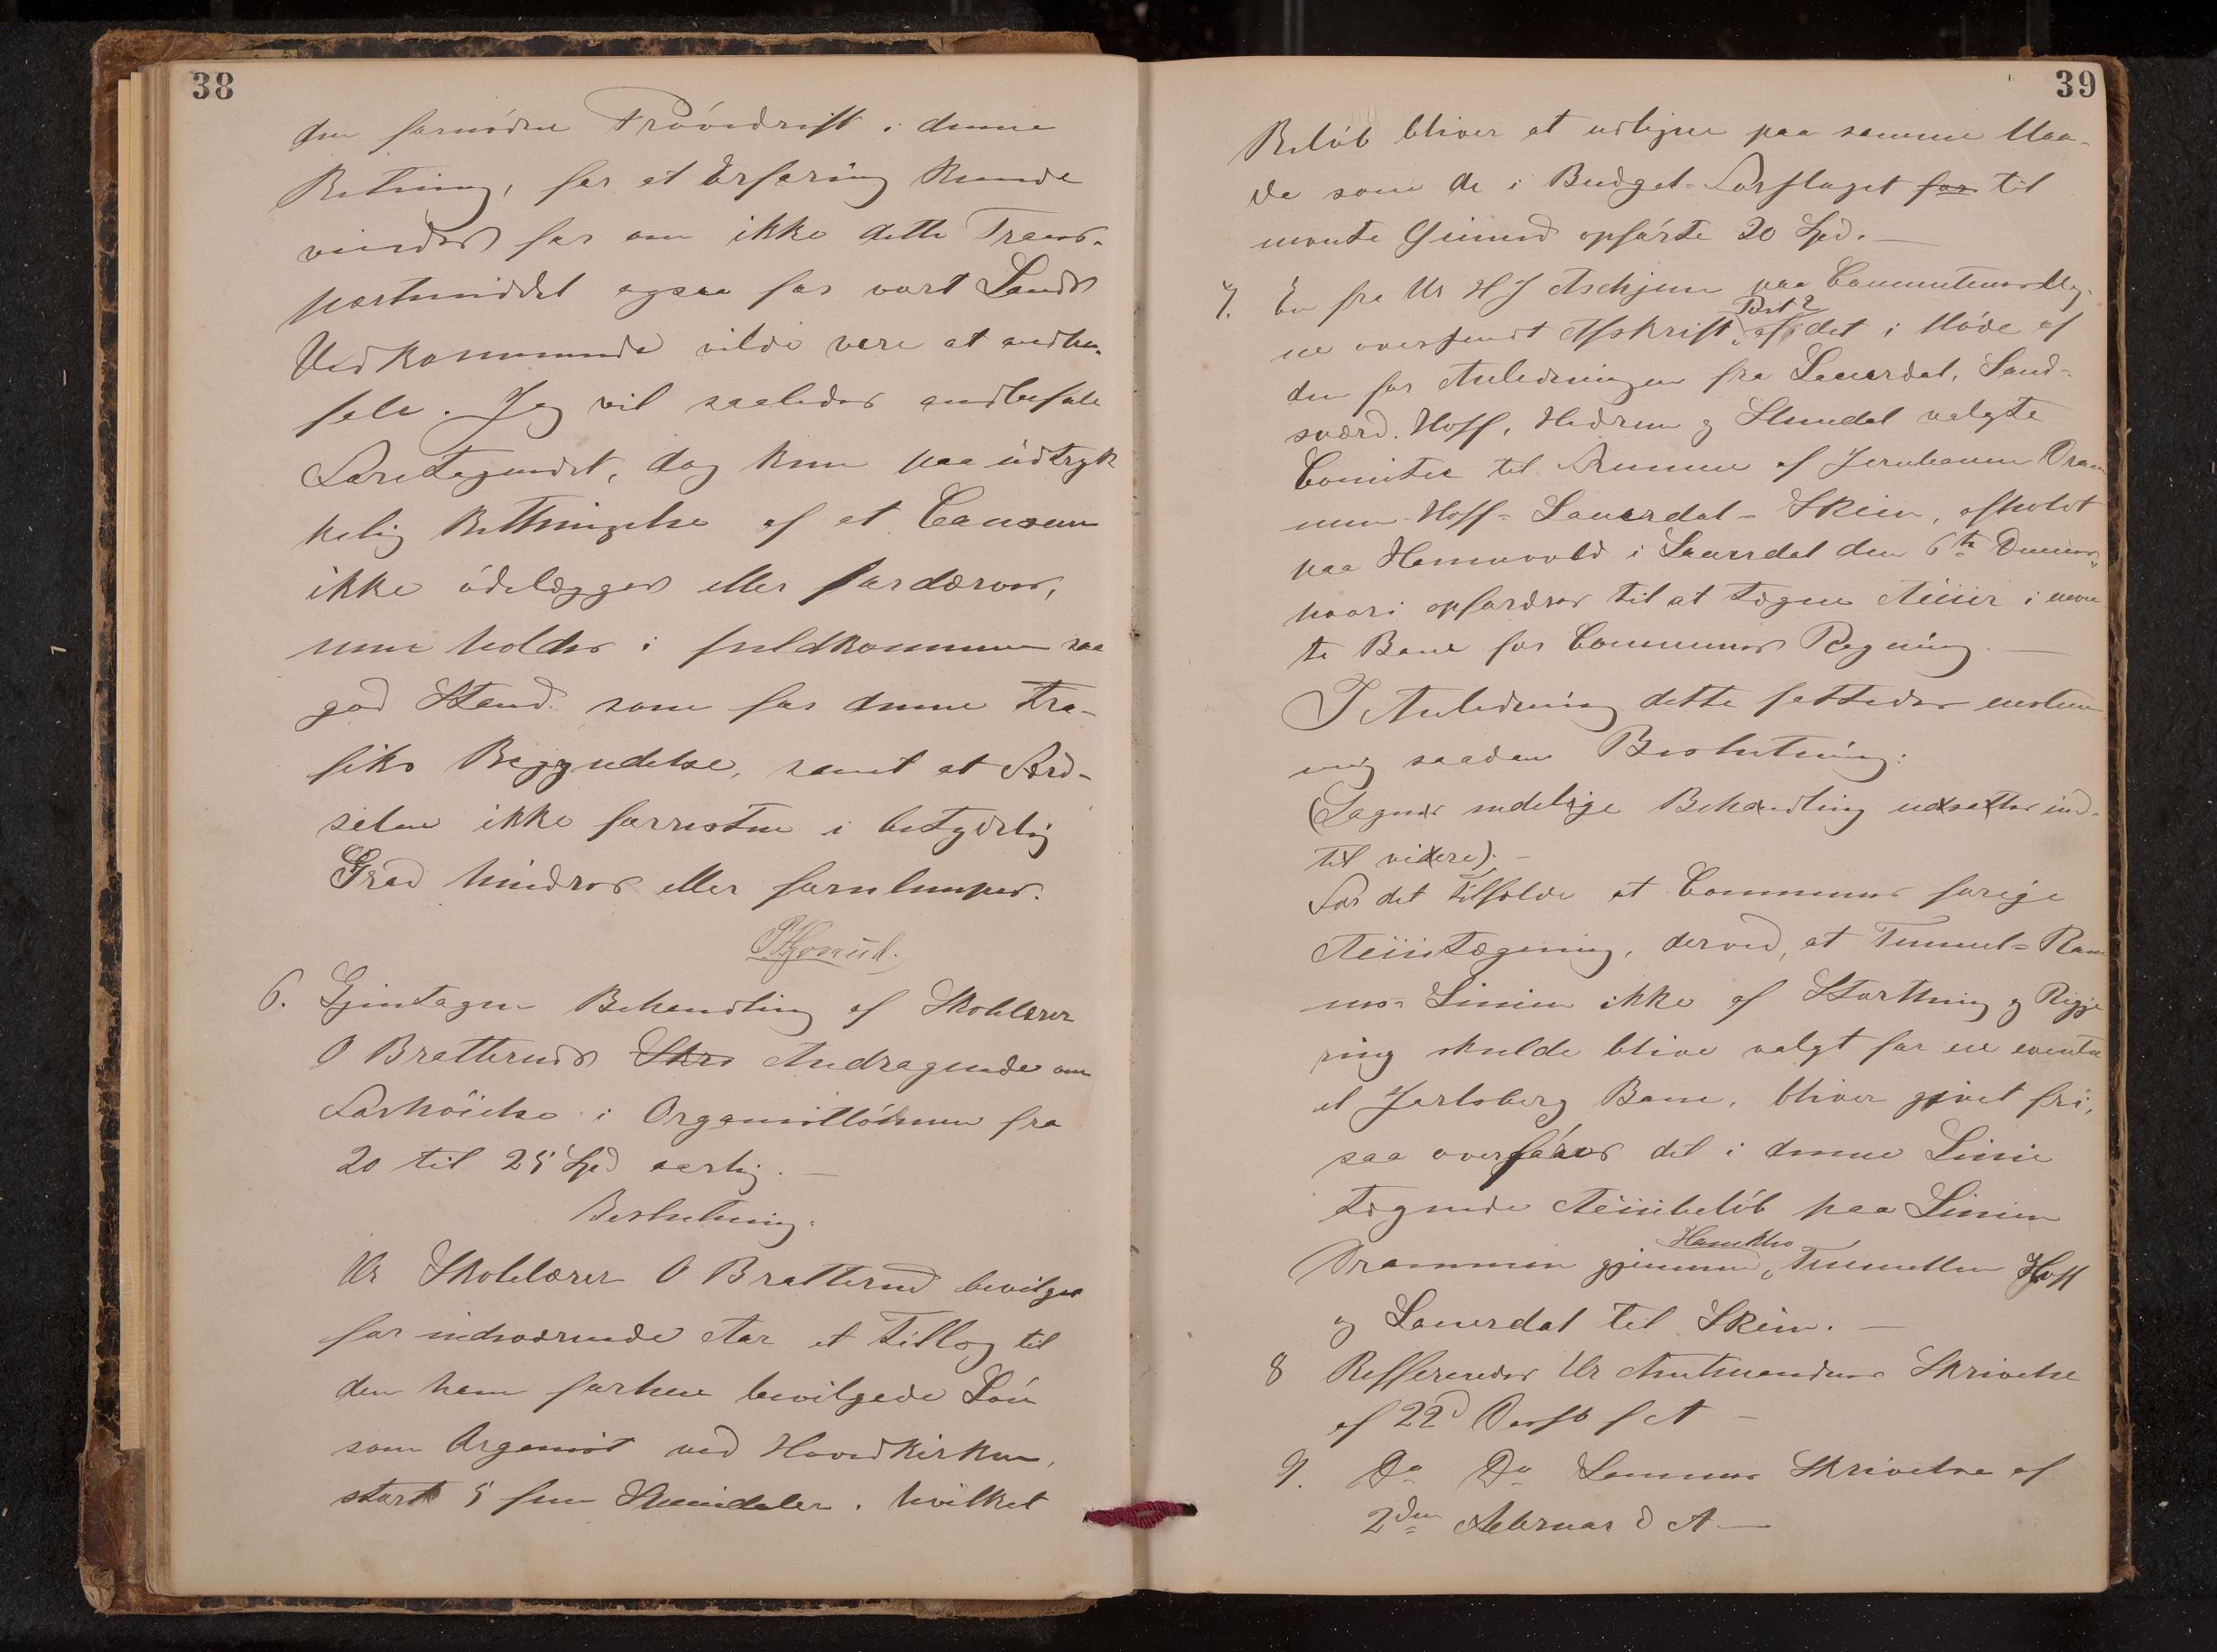 38
den fornødne Prøvedrift i denne
Retning, for at Erfaring kunde
vindes for om ikke dette Trans-
portmiddel ogsaa for vort Lands
Vedkommende vilde være at anbe-
fale. Jeg vil saaledes andbefale
Foretagendet, dog kun paa udtryk
kelig Bettingelse af at Causeen
ikke ødelægges eller fordærves,
men holdes i fuldkommen saa
god Stand som før denne Tra-
fiks Begyndelse, samt at Færd-
selen ikke forresten i betydelig
Grad hindres eller forulempes.
6. Gjentagen Behandling af Skolelærer
O Bratteruds Skrs Andragende om
Forhøielse i Organistlønnen fra
20 til 25 Spd aarlig. —
Beslutning.
Hr Skolelærer O Bratterud bevilges
for indeværende Aar et Tillæg til
den ham forhen bevilgede Løn
som Organist ved Hovedkirken,
stort 5 fem Speciedaler, hvilket
39
Beløb bliver at udligne paa samme Maa-
de som de i Budget-Forslaget for til
opførte 20 Spd. —
7. En fra Hr H J Aschjem paa Communens Veg-
Post 2
ne oversendt Afskrift af det i Møde af
den for Anledningen fra Lauerdal, Sand-
sværd, Hoff, Hedrum og Slemdal valgte
Comitee til Fremme af Jernbanen Dram
men-Hoff-Lauerdal-Skien, afholdt
paa Hemnvold i Lauerdal den 6te Dennes,
hvori opfordres til at tegne Actier i nævn
te Bane for Communens Regning. —
I Anledning dette fattedes enstem
mig saadan Beslutning:
(Sagens endelige Behandling udsættes ind-
til videre). —
For det Tilfælde at Communens forige
Actietegning, derved, at Tunnel-Ram
nes-Linien ikke af Storthing og Regje
ring skulde blive valgt for en eventu
el Jarlsberg Bane, bliver givet fri,
saa overføres det i denne Linie
tegnede Actiebeløb paa Linien
Drammen gjennem Tunnellen Hoff
og Lauerdal til Skien. —
8 Reffereredes Hr Amtmandens Skrivelse
af 22d f A —
9. Do Do Sammes Skrivelse af
2den Februar d A —